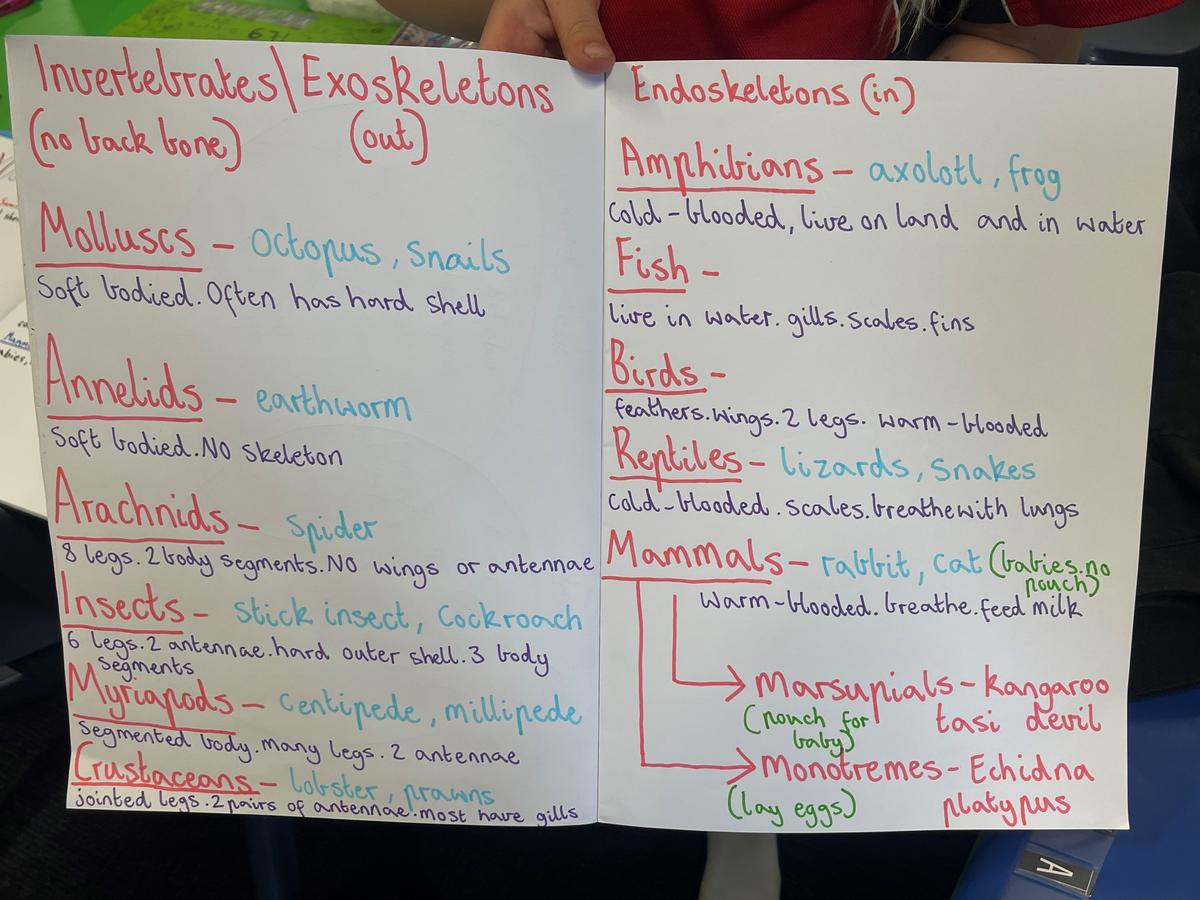 Invertebrates\Exoskeletons
(no back bone) (out)
Molluscs - Octopus, Snails
Soft bodied. Often has hard shell
Annelids - earthworm
Soft bodied. No skeleton
Arachnids - Spider
8 legs. 2 body segments. No wings or antennae
Insects - Stick insect, Cockroach
6 legs. 2 antennae. hard outer shell. 3 body
segments
Myriapods - Centipede, millipede
Segmented body. many legs. 2 antennae
Crustaceans - lobster, prawns
jointed legs. 2 pairs of antennae. most have gills
Endoskeletons (in)
Amphibians - axolotl, frog
Cold-blooded, live on land and in water
Fish -
live in water. gills. scales. fins
Birds -
feathers. wings. 2 legs. warm-blooded
Reptiles - lizards, Snakes
Cold-blooded. scales. breathe with lungs
Mammals - rabbit, cat (babies. no
pouch)
warm-blooded. breathe. feed milk
Marsupials - kangaroo
(pouch for tasi devil
baby)
Monotremes - Echidna
(lay eggs) platypus
67!
A